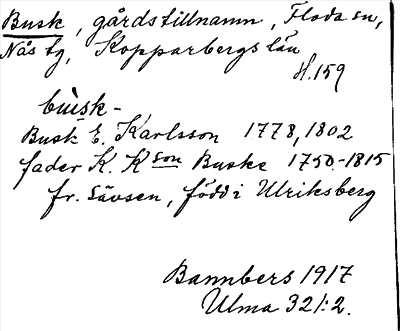 Busk, gårdstillnamn, Floda sn,
Nås tg, Kopparbergs län
H.159
bùsk-
Busk E. Karlsson 1778, 1802
fader K. Kson Buske 1750-1815
fr. Sävsen, född i Ulriksberg
Bannbers 1917
Ulma 321:2.